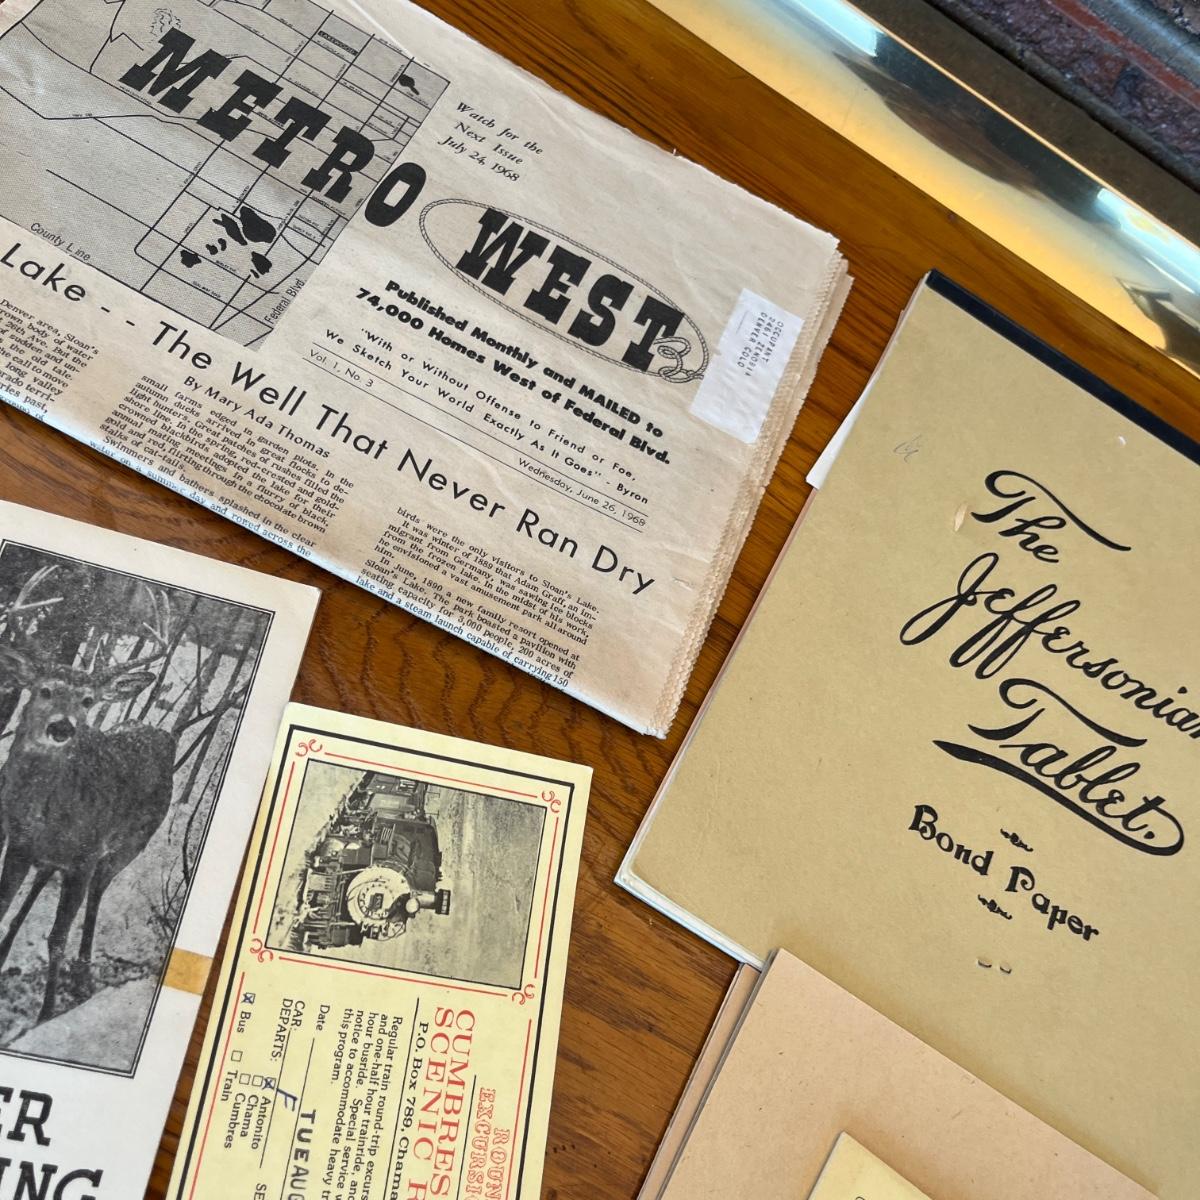 METRO WEST
Watch for the
Next Issue
July 24, 1968
County Line
Federal Blvd.
Published Monthly and MAILED to
74,000 Homes West of Federal Blvd.
"With or Without Offense to Friend or Foe,
We Sketch Your World Exactly As It Goes" -- Byron
Vol. 1, No. 3
Wednesday, June 26, 1968
OCCUPANT
DENVER COLO
Lake - - The Well That Never Ran Dry
By Mary Ada Thomas
Denver area, Sloan's
brown body of water
26th Ave. But the
of sudden and un-
the old tale.
the call to move
long valley
past,
small farms edged in garden plots. In the
autumn ducks arrived in great flocks to de-
light hunters. Great patches of rushes filled the
shore line. In the spring, red-crested and gold-
crowned blackbirds adopted the lake for their
annual mating meetings in a flurry of black,
gold and red, flirting through the chocolate brown
stalks of cat-tails.
Swimmers and bathers splashed in the clear
water on a summer day and rowed across the
birds were the only visitors to Sloan's Lake.
It was winter of 1889 that Adam Graff, an im-
migrant from Germany, was sawing ice blocks
from the frozen lake. In the midst of his work,
he envisioned a vast amusement park all around
him.
In June, 1890 a new family resort opened at
Sloan's Lake. The park boasted a pavilion with
seating capacity for 3,000 people, 200 acres of
lake and a steam launch capable of carrying 150
The
Jeffersonian
Tablet.
Bond Paper
ER
ING
ROUN
EXCURSI
CUMBRES
SCENIC R
P.O. Box 789, Chama
Regular train round-trip excurs
and one-half hour trainride, and
hour busride. Special service w
notice to accommodate heavy tr
this program.
Date TUE AUG
CAR: F
DEPARTS: ☒ Antonito
☐ Chama
☐ Cumbres
☒ Bus ☐ Train
SE